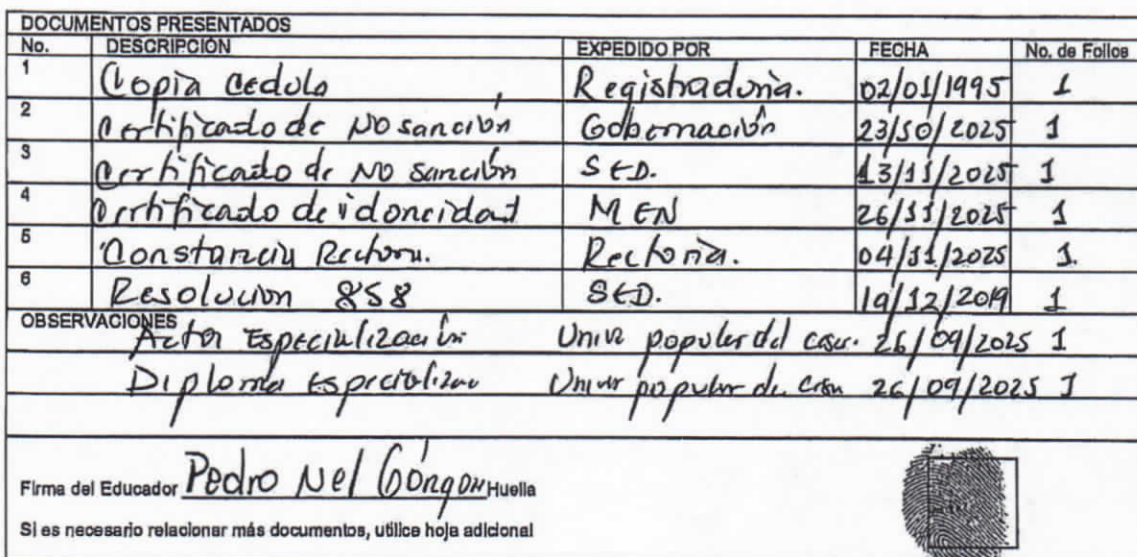 DOCUMENTOS PRESENTADOS
No. DESCRIPCIÓN EXPEDIDO POR FECHA No. de Folios
1 Copia cedula Registraduria. 02/01/1995 1
2 Certificado de NO sanción Gobernación 23/10/2025 1
3 Certificado de NO sanción SED. 13/11/2025 1
4 Certificado de idoneidad MEN 26/11/2025 1
5 Constancia Rectoria. Rectoria. 04/11/2025 1.
6 Resolucion 858 SED. 19/12/2019 1
OBSERVACIONES
Acta Especialización Univ popular del cesar. 26/09/2025 1
Diploma Especializac Univer popular de 26/09/2025 1
Firma del Educador Pedro Nel Huella
Si es necesario relacionar más documentos, utilice hoja adicional